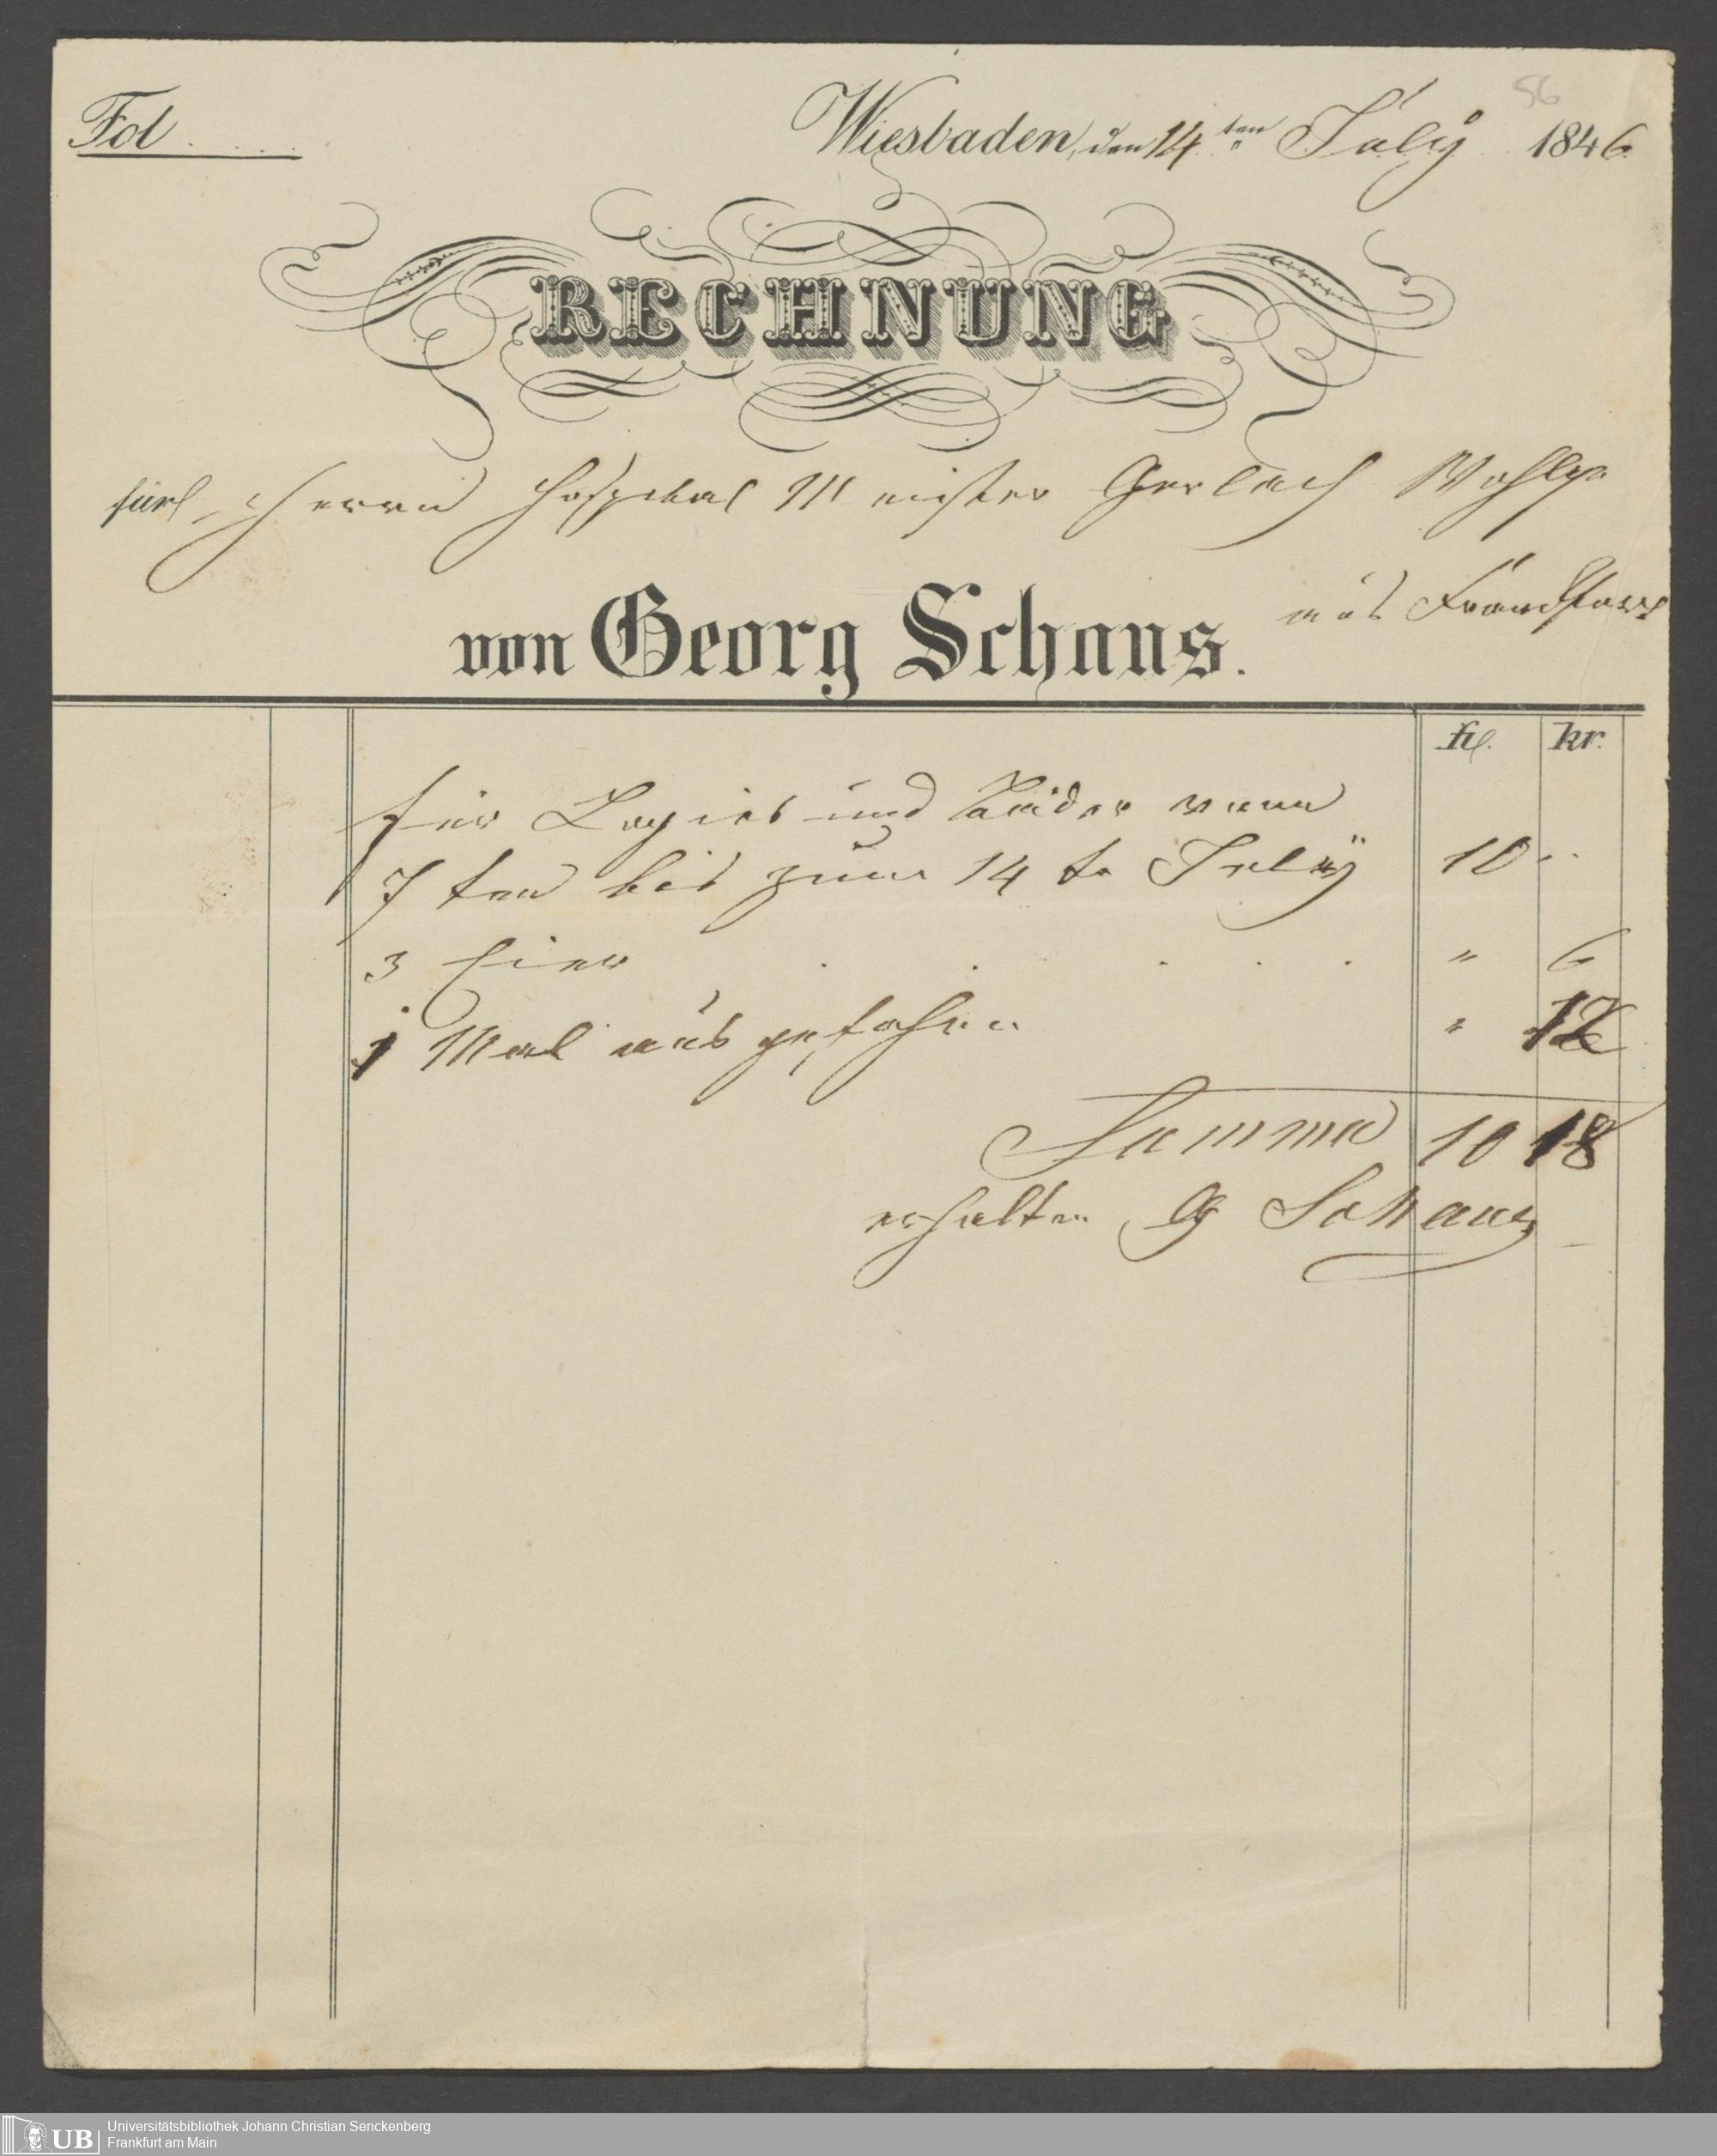 56
Fol. . . . .
Wiesbaden, den 14ten July 1846
RECHNUNG
für Herrn Hospital Meister Gerlach Wohlg.
von Georg Schaus.
aus Franckfurt
fl. kr.
für Logies und Bäder vom
7 ten bis zum 14 te July 10 "
3 Eier . . . . . . " 6
1 Mal aus gefahren " 12
Summa 10 18
erhalten G Schaus
UB
Universitätsbibliothek Johann Christian Senckenberg
Frankfurt am Main